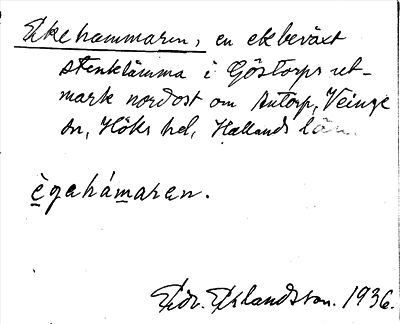 Ekehammaren, en ekbeväxt
stenklämma i Göstorps ut-
mark nordost om Antorp, Veinge
sn, Höks hd, Hallands län.
ègahámaren.
Edv. Eklandson. 1936.